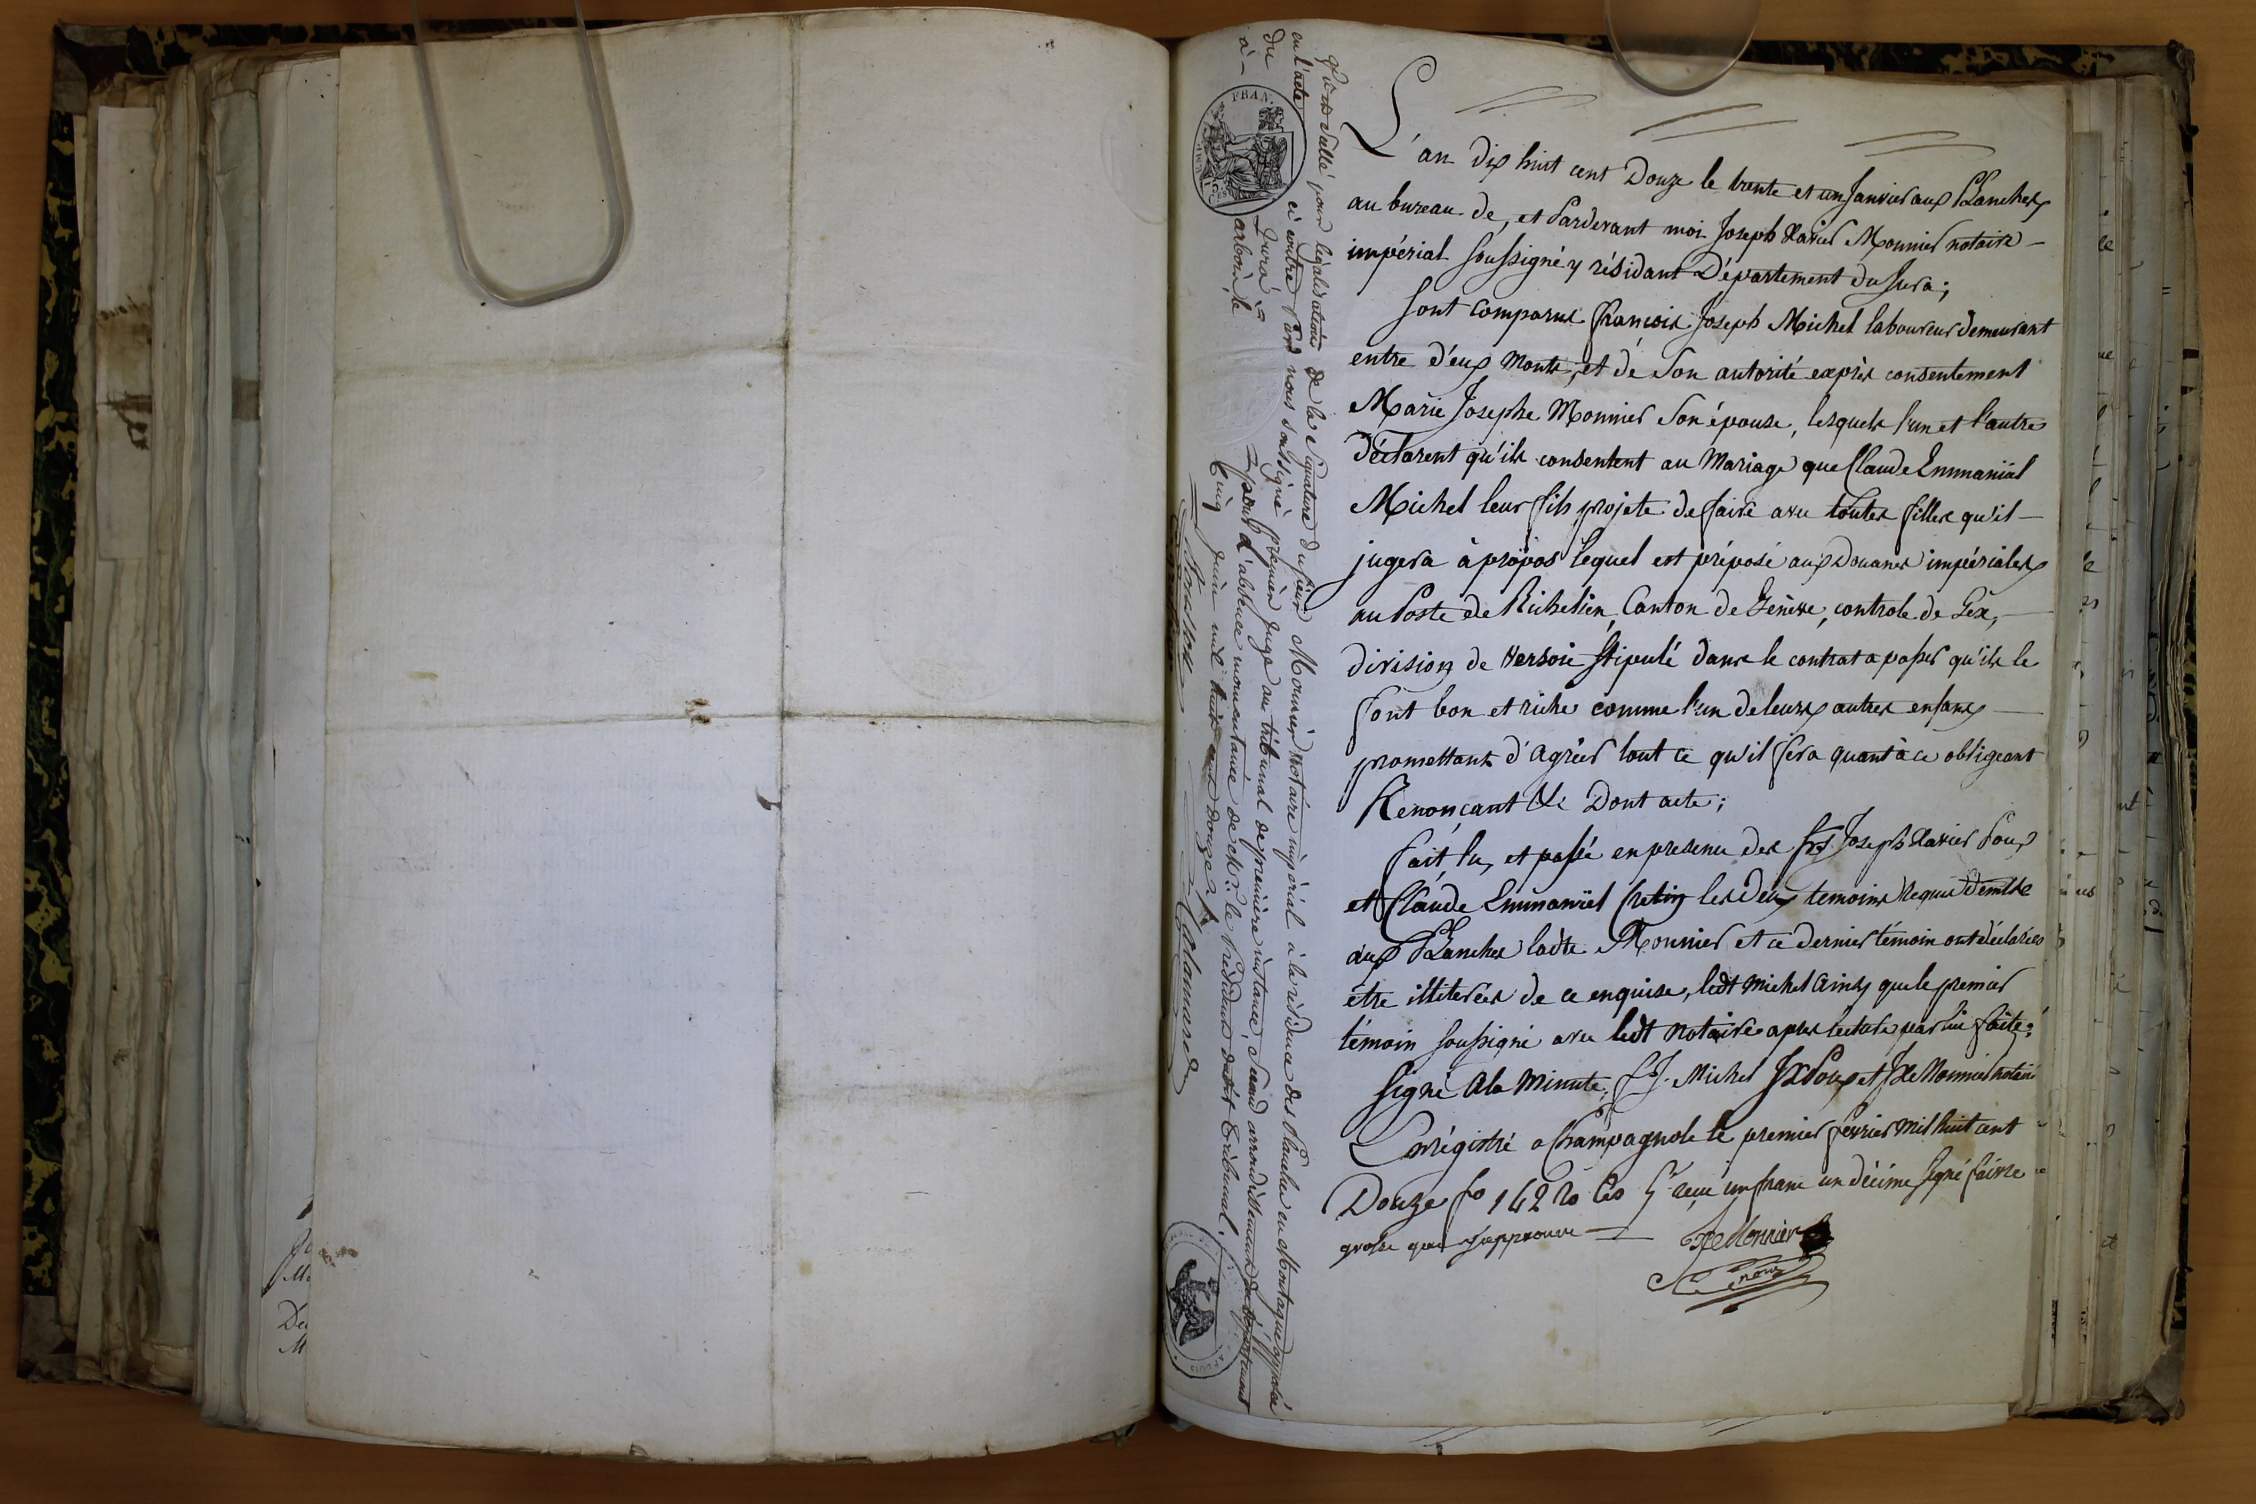 L'an dix huit cent Douze le trente et un Janvier aux Planches
au bureau de, et Pardevant moi Joseph Xavier Monnier notaire
impérial soussigné y résidant Département du Jura;
Sont comparus françois Joseph Michel laboureur demeurant
entre d'eux Monts, et de Son autorité exprès consentement
Marie Josephe Monnier Son épouse, lesquels l'un et l'autre
Déclarent qu'ils consentent au Mariage que Claude Emmaniäl
Michel leur fils projete de faire avec toutes filles qu'il
jugera à propos lequel est préposé aux Douanes impériales
au Poste de Richelien, Canton de Genève, controle de Gex,
division de Versoie Stipulé dans le contrat a passer qu'ils le
font bon et riche comme l'un de leurs autres enfans
promettant d'agréer tout ce qu'il fera quant à ce obligeant
Renonçant &c Dont acte;
fait, lu, et passé en presence des Srs Joseph Xavier Poux
et Claude Emmanuel Cretin les deux temoins Requis demts
aux Planches ladte Monnier et ce dernier temoin ont déclarés
être illiterées de ce enquise, ledt Michel ainsy que le premier
témoin soussigné avec ledt notaire apres lecture par lui faite;
Signé a la Minute; f. J. Michel J X Poux et J Xe Monnier notaire
Enrégistré a Champagnole le premier fevrier mil huit cent
Douze fo 142 Ro Cso 5e reçu un franc un décime signé faivre
grosse que J'approuve
JXe Monnier
nore
Vu et Scellé pour légalisation de la Signature du Sieur Monnier notaire impérial à la résidence des Planches en Montagne apposée
en l'acte ci contre Par nous soussigné premier Juge au tribunal de première instance, Séand arrondissement de département
du Jura pour l'absence momentanée de Mr. le Président dudit Tribunal.
à arbois, le Cinq Juin mil huit cent douze
FRAN.